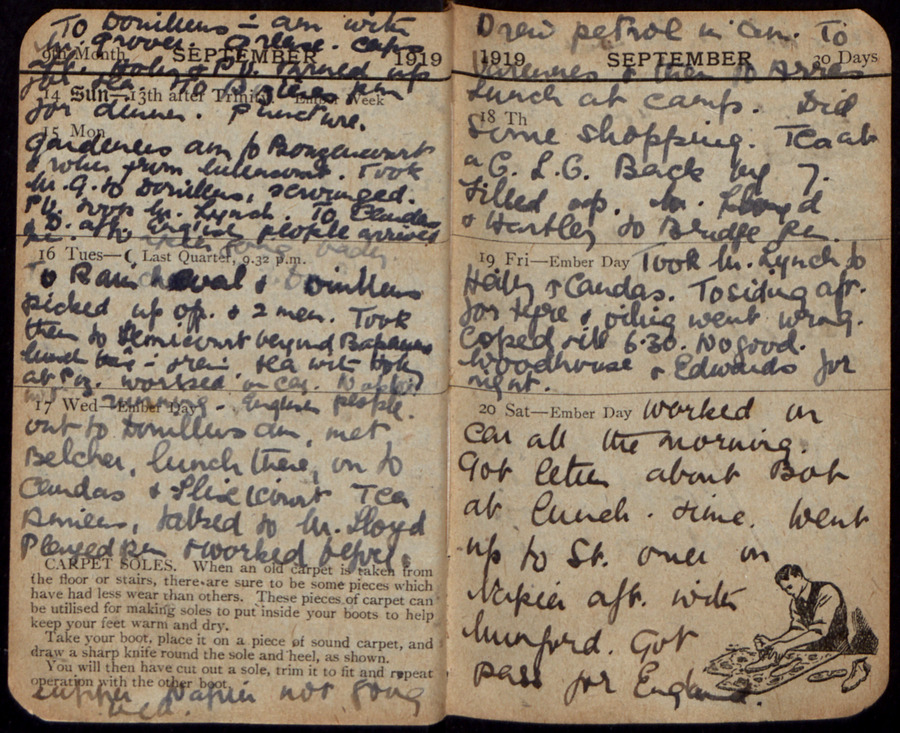 To Doullens - am with
Mr. Grover. Grease. caps
9th Month SEPTEMBER 1919
turned up
for tea. To
14 Sun—13th after Trinity Ember Week
for dinner. Puncture.
15 Mon
Gardeners am to Bouzencourt
& when from. Took
Mr. G. to Doullens, scrounged.
Mr. Lynch. To Candas
aft. Engine people arrived
16 Tues—☾ Last Quarter, 9.32 p.m.
To Raincheval & Doullens
picked up off. & 2 men. Took
them to Hemicourt beyond Bapaume
lunch tea with
at worked on car.
morning. Engineer people.
17 Wed—Ember Day
out to Doullens am, met
Belcher, lunch there, on to
Candas & Flixicourt Tea
Amiens, talked to Mr. Lloyd
& worked before
CARPET SOLES. When an old carpet is taken from
the floor or stairs, there are sure to be some pieces which
have had less wear than others. These pieces of carpet can
be utilised for making soles to put inside your boots to help
keep your feet warm and dry.
Take your boot, place it on a piece of sound carpet, and
draw a sharp knife round the sole and heel, as shown.
You will then have cut out a sole, trim it to fit and repeat
operation with the other boot.
supper Napier not going
well.
Drew petrol in am. To
1919 SEPTEMBER 30 Days
Varennes & then to Arras
Lunch at camp. Did
18 Th
some shopping. Tea at
a C.L.G. Back by 7.
Filled up. Mr. Lloyd
& Hartley to Bridge
19 Fri—Ember Day Took Mr. Lynch to
Heilly & Candas. To siding aft.
for tyre & oiling went wrong.
Coped till 6.30. No good.
Woodhouse & Edwards for
night.
20 Sat—Ember Day Worked on
car all the morning.
Got letter about Bob
at lunch. time. Went
up to St. Omer in
Napier aft. with
Mumford. Got
pass for England.